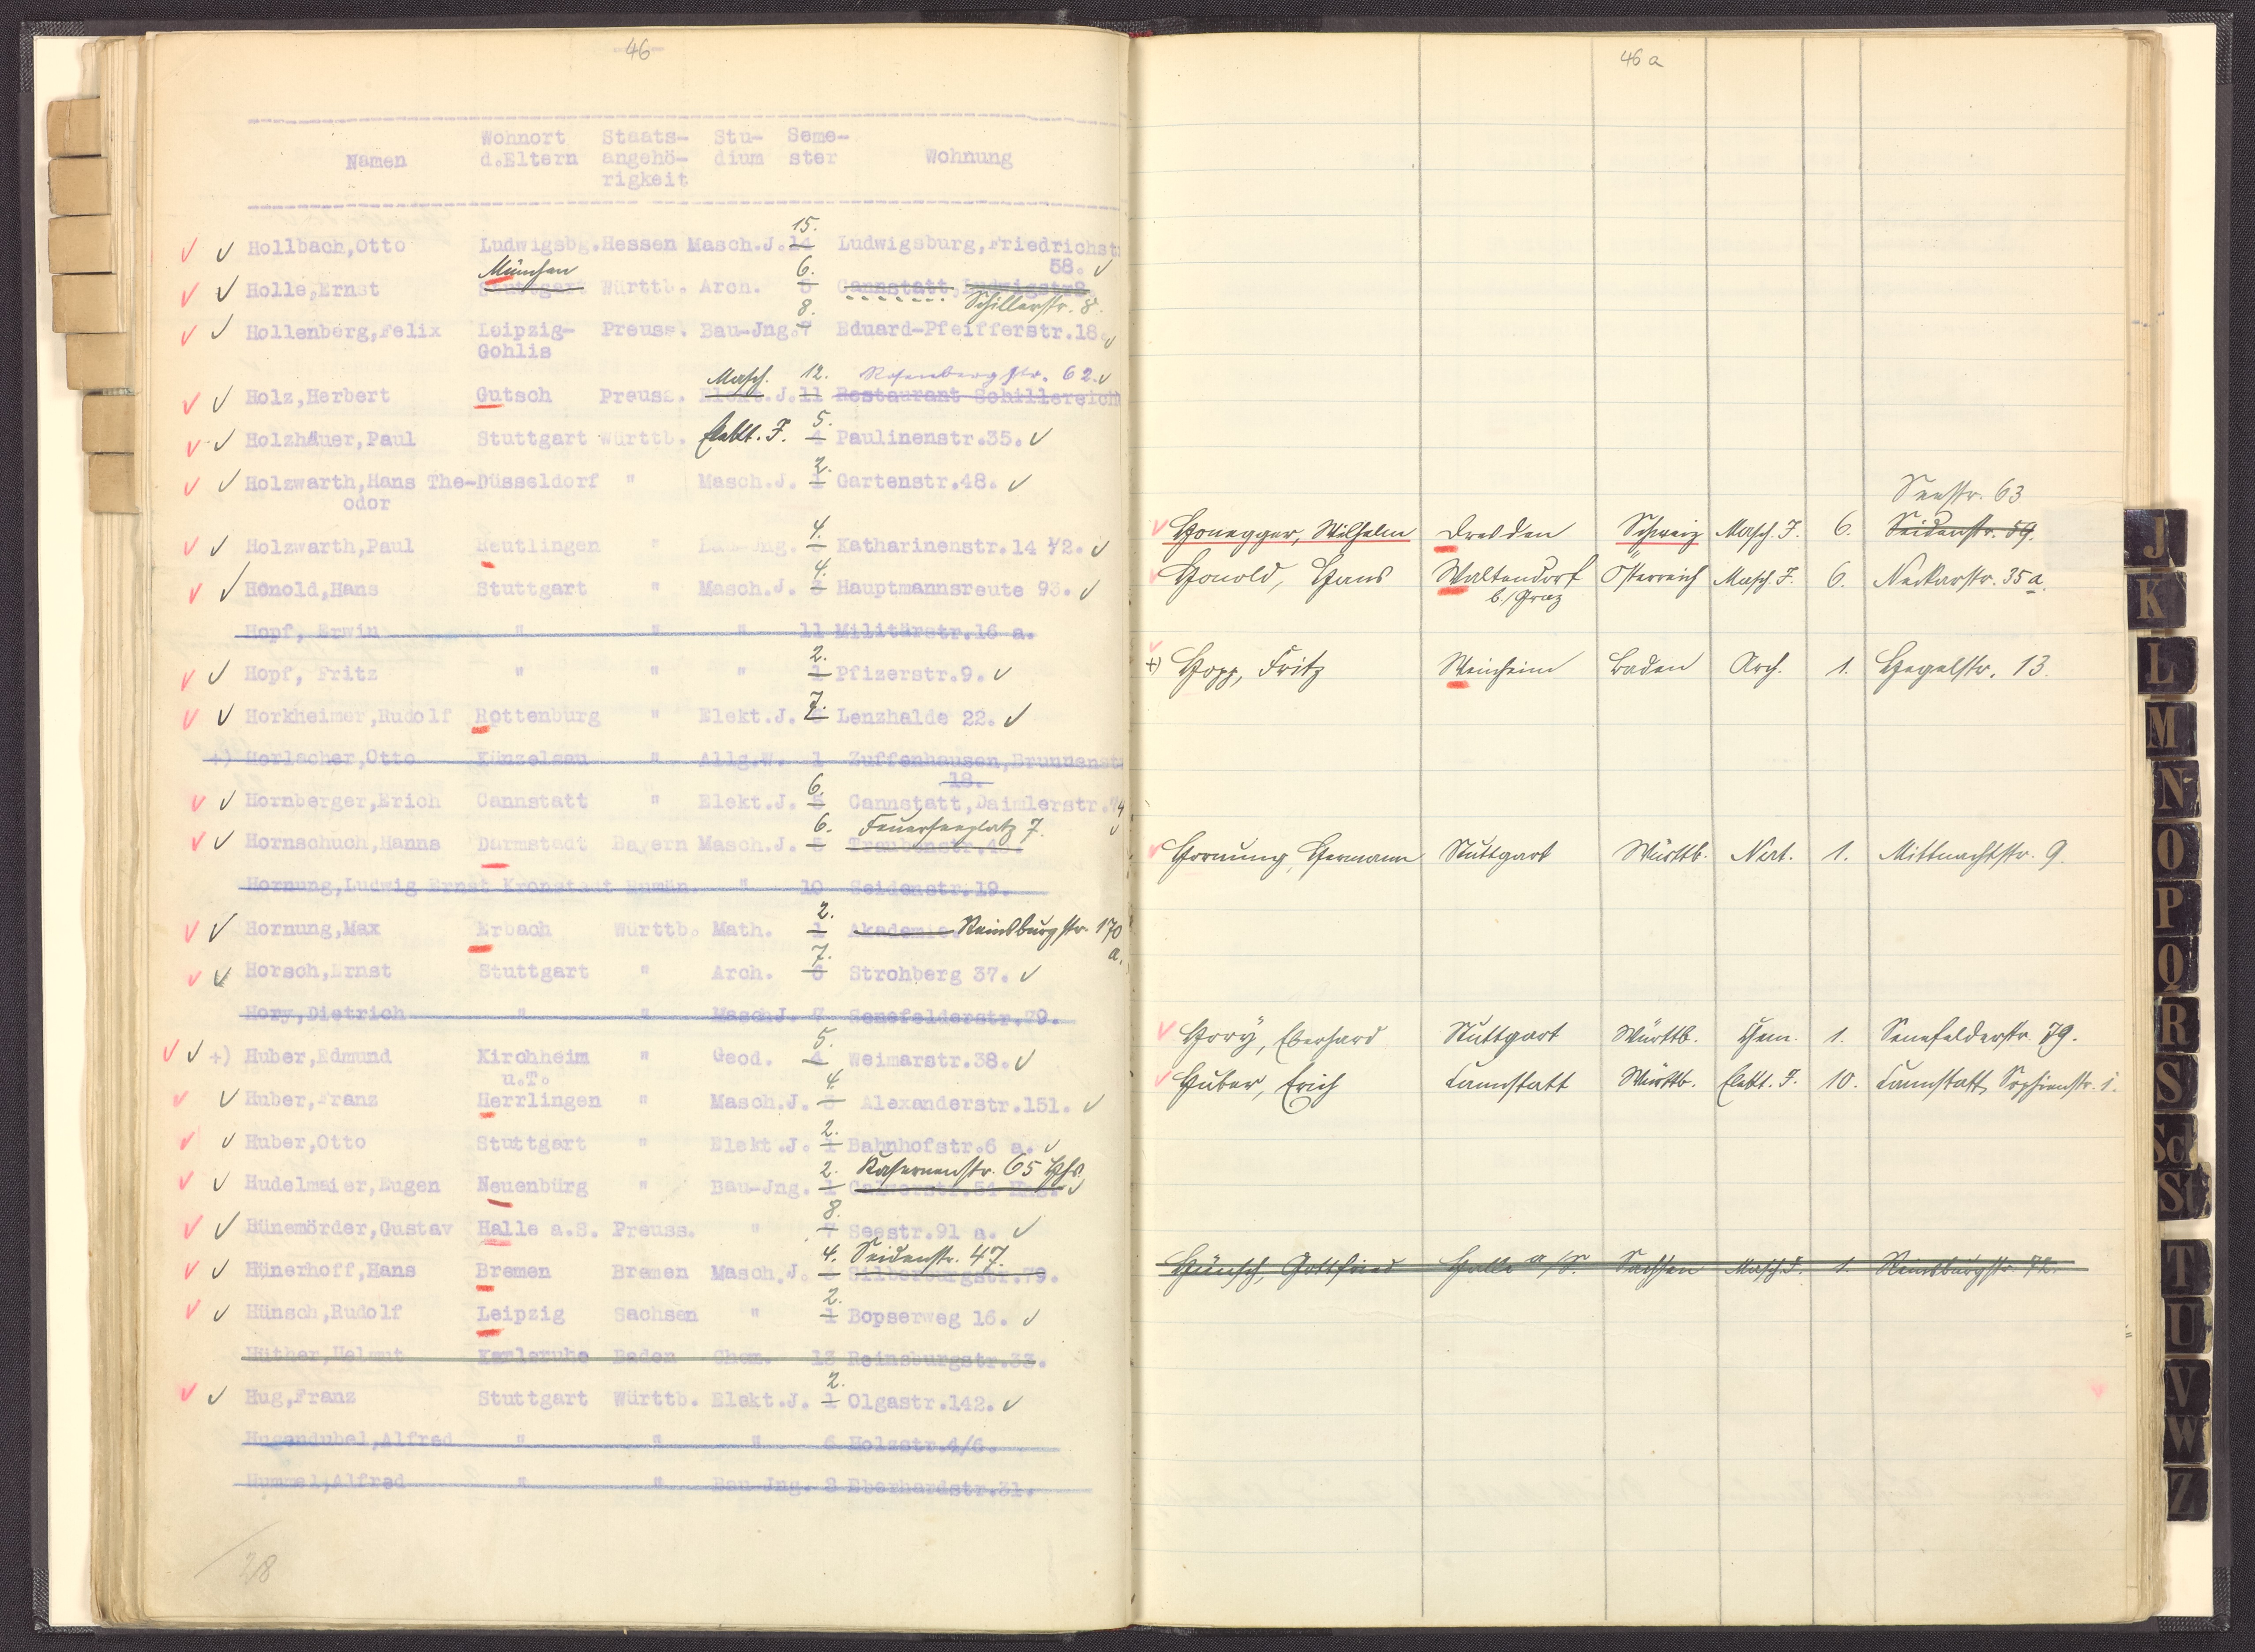 46
Wohnort Staats- Stu- Seme-
Namen d.Eltern angehö- dium ster Wohnung
rigkeit
15.
Hollbach,Otto Ludwigsbg.Hessen Masch.J.14 Ludwigsburg,Friedrichst
München 6. 58.
Holle,Ernst Stuttgart Württb. Arch. 5 Cannstatt,Ludwigstr8.
8. Schillerstr. 8.
Hollenberg,Felix Leipzig- Preuss. Bau-Jng.7 Eduard-Pfeifferstr.18.
Gohlis
Masch. 12. Rosenbergstr. 62.
Holz,Herbert Gutsch Preuss. Elekt.J.11 Restaurant Schillereich
5.
Holzhäuer,Paul Stuttgart Württb. Elekt. J. 4 Paulinenstr.35.
2.
Holzwarth,Hans The-Düsseldorf " Masch.J. 1 Gartenstr.48.
odor
4.
Holzwarth,Paul Reutlingen " Bau-Jng. Katharinenstr.14 1/2.
4.
Honold,Hans Stuttgart " Masch.J. Hauptmannsreute 93.
Hopf, Erwin " " " 11 Militärstr.16 a.
2.
Hopf, Fritz " " " 1 Pfizerstr.9.
7.
Horkheimer,Rudolf Rottenburg " Elekt.J. Lenzhalde 22.
+) Horlacher,Otto Künzelsau " Allg.W. 1 Zuffenhausen,Brunnenst
18.
6.
Hornberger,Erich Cannstatt " Elekt.J. 5 Cannstatt,Daimlerstr.
6. Feuerseeplatz 7.
Hornschuch,Hanns Darmstadt Bayern Masch.J. 5 Traubenstr.
Hornung,Ludwig Ernst Kronstadt Rumän. " 10 Seidenstr.19.
2.
Hornung,Max Erbach Württb. Math. 1 Akademie. Reinsburgstr. 170
7. a.
Horsch,Ernst Stuttgart " Arch. 6 Strohberg 37.
Hory,Dietrich " " MaschJ. 7 Senefelderstr.79.
5.
+) Huber,Edmund Kirchheim " Geod. 4 Weimarstr.38.
u.T. 4.
Huber,Franz Herrlingen " Masch.J. 3 Alexanderstr.151.
2.
Huber,Otto Stuttgart " Elekt.J. 1 Bahnhofstr.6 a.
2. Kasernenstr. 65 Hhs.
Hudelmaier,Eugen Neuenbürg " Bau-Jng. 1 Calwerstr.54 Hhs.
8.
Hünemörder,Gustav Halle a.S. Preuss. " 7 Seestr.91 a.
4. Seidenstr. 47.
Hünerhoff,Hans Bremen Bremen Masch.J. Silberburgstr.79.
2.
Hünsch,Rudolf Leipzig Sachsen " 1 Bopserweg 16.
Hüther,Helmut Karlsruhe Baden Chem. 13 Reinsburgstr.33.
2.
Hug,Franz Stuttgart Württb. Elekt.J. 1 Olgastr.142.
Hugendubel,Alfred " " " 6 Holzstr.4/6.
Hummel,Alfred " " Bau-Jng. 8 Eberhardstr.31.
28
46 a
Seestr. 63
Honegger, Wilhelm Dresden Schweiz Masch. J. 6. Seidenstr. 59.
Honold, Hans Waltendorf Österreich Masch. J. 6. Neckarstr. 35 a.
b./Graz
+) Hopp, Fritz Weinheim Baden Arch. 1. Hegelstr. 13.
Hornung, Hermann Stuttgart Württb. Nat. 1. Mittnachtstr. 9.
Hory, Eberhard Stuttgart Württb. Chem. 1. Senefelderstr. 79.
Huber, Erich Cannstatt Württb. Elekt. J. 10. Cannstatt, Sophienstr. 1.
Hünsch, Gottfried Halle a/S. Sachsen Masch. J. 1. Reinsburgstr. 72.
J
K
L
M
N
O
P
Q
R
S
Sch
St
T
U
V
W
Z